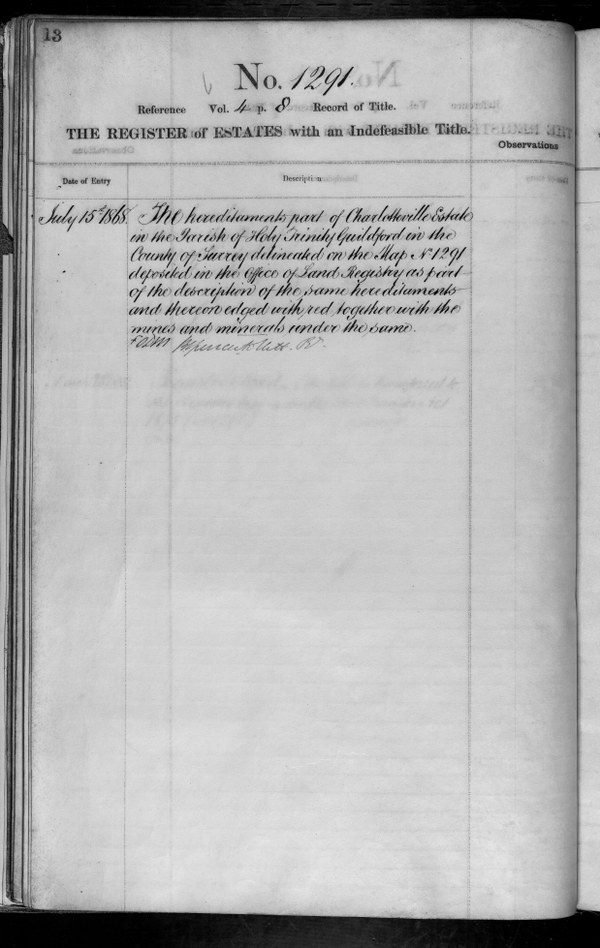 13
No. 1291.
Reference Vol. 4 p. 8 Record of Title.
THE REGISTER of ESTATES with an Indefeasible Title.
Observations
Date of Entry
Description
July 15th 1868.
The hereditaments part of Charlotteville Estate
in the Parish of Holy Trinity Guildford in the
County of Surrey delineated on the Map No 1291
deposited in the Office of Land Registry as part
of the description of the same hereditaments
and thereon edged with red, together with the
mines and minerals under the same.